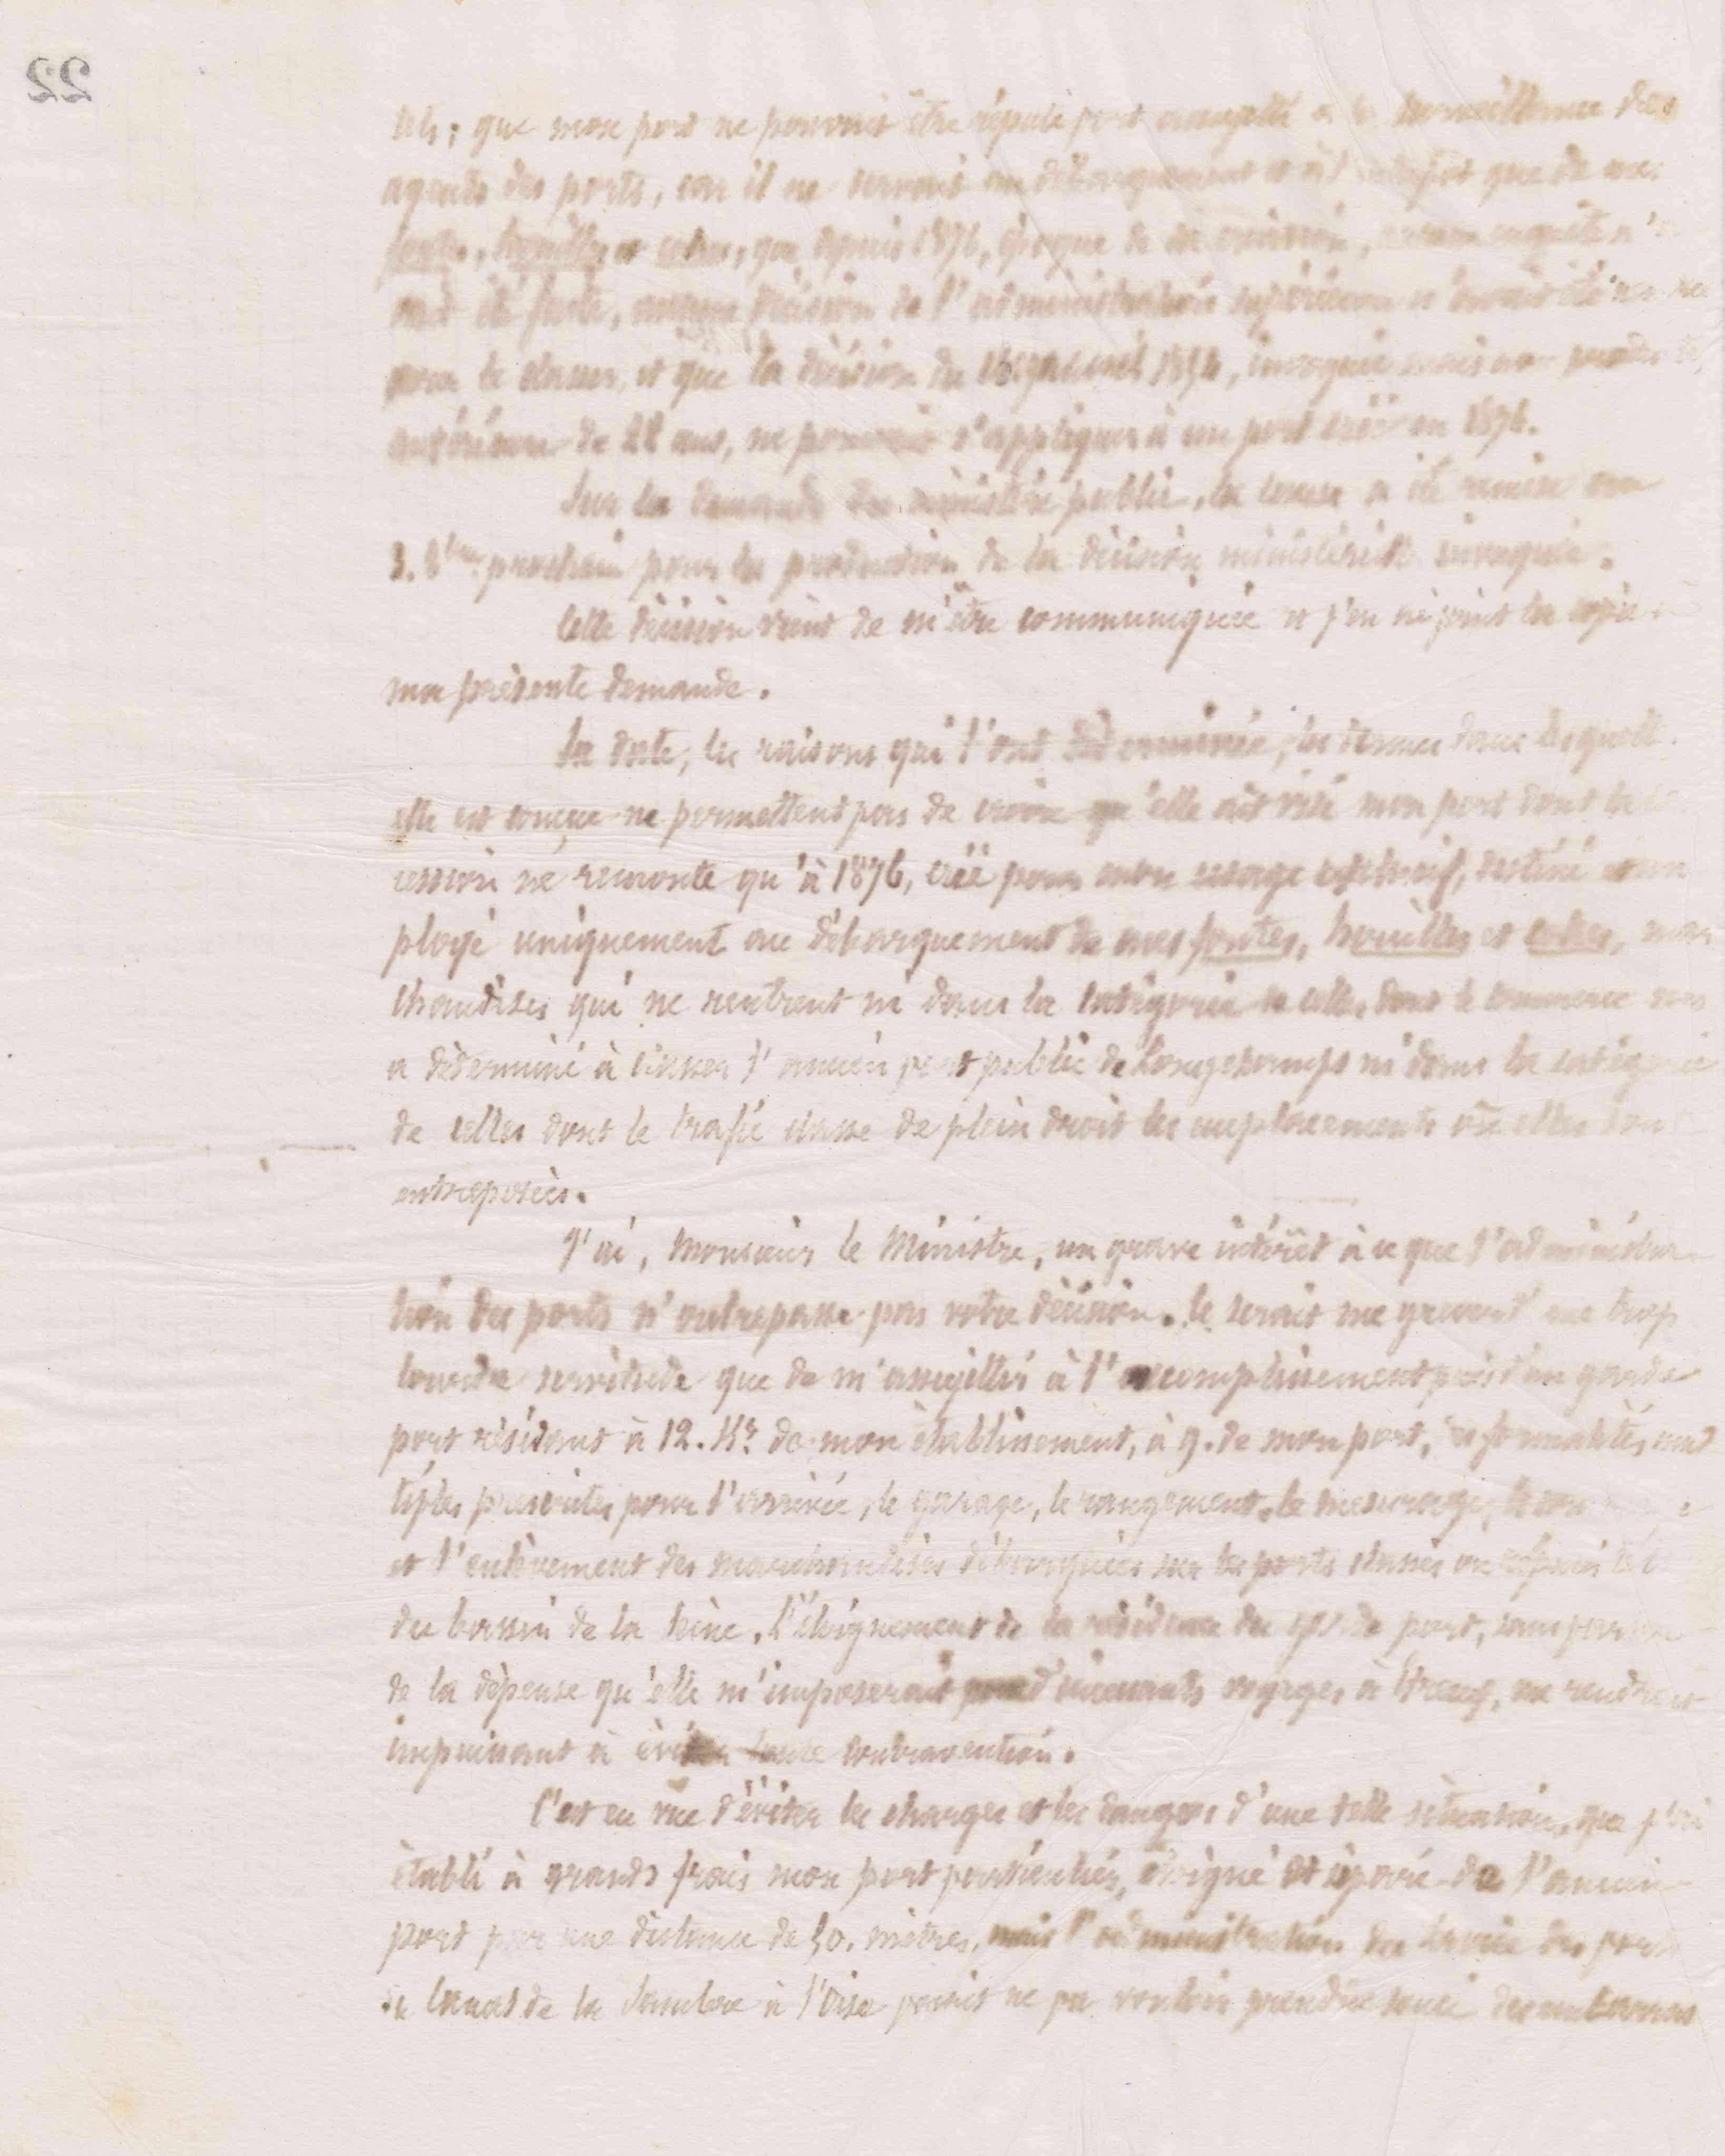 22
tels ; que mon port ne pouvait être réputé port assujetti à la surveillance des
agents des ports, car il ne servait au débarquement et à l' que de mes
fontes, houilles et cokes, que depuis 1876, époque de sa création, aucune enquête n'
ont été faite, aucune décision de l'administration supérieure n'avait été
pour le classer, et que la décision du 1854, invoquée mais non
antérieure de 22 ans, ne pouvait s'appliquer à un port créé en 1876.
Sur la demande du ministère public, la cause a été remise au
3. 8bre prochain pour la production de la décision ministérielle invoquée.
Cette décision vient de m'être communiquée et j'en ai joint la copie à
ma présente demande.
La date, les raisons qui l'ont déterminée, les termes dans lesquels
elle est conçue ne permettent pas de croire qu'elle ait visé mon port dont la
cession ne remonte qu'à 1876, créé pour mon usage exclusif, destiné et em
ployé uniquement au débarquement de mes fontes, houilles et cokes, mar
chandises qui ne rentrent ni dans la catégorie de celles dont le commerce vous
a déterminé à classer l'ancien port public de Longchamps ni dans la catégorie
de celles dont le trafic classe de plein droit les emplacements où elles sont
entreposées.
J'ai, Monsieur le Ministre, un grave intérêt à ce que l'administra
tion des ports n'outrepasse pas votre décision. Ce serait me grever d'une trop
lourde servitude que de m'assujettir à l'accomplissement près d'un garde
port résidant à 12. Kres de mon établissement, à 9. de mon port, de formalités mul
tiples prescrites pour l'arrivée, le garage, le rangement, le mesurage,
et l'enlèvement des marchandises débarquées sur les ports classés
du bassin de la Seine. L'éloignement de la résidence du garde port, sans parler
de la dépense qu'elle m'imposerait pour d'incessants voyages à me rendrait
impuissant à éviter toute contravention.
C'est en vue d'éviter les charges et les dangers d'une telle situation, que j'ai
établi à grands frais mon port particulier, éloigné et séparé de l'ancien
port par une distance de 50. mètres, mais l'administration du service des ports
du Canal de la Sambre à l'Oise parait ne pas vouloir prendre souci des embarras